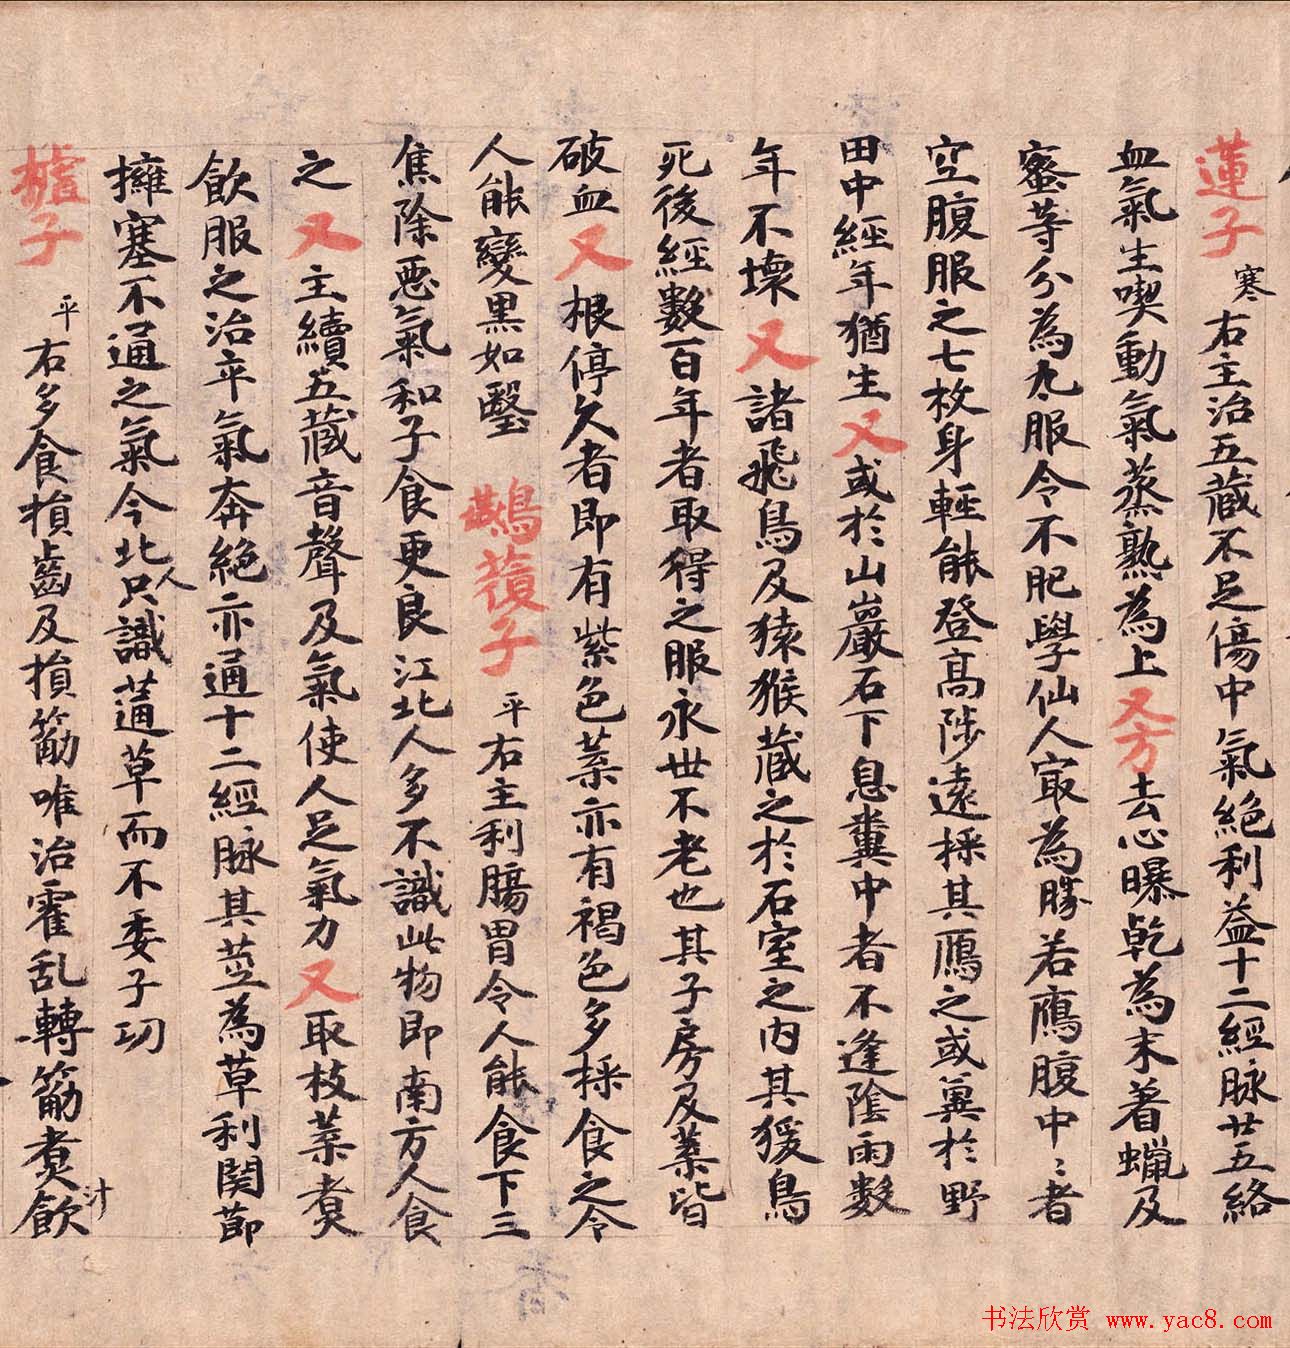 蓮子寒右主治五蔵不足傷中氣絶利益十二經脉廿五絡
血氣生喫動氣蒸熟為上又方去心曝乾為末着蠟及
蜜等分為丸服令不肥學仙人寂為勝若鴈腹中〻者
空腹服之七枚身輕能登高陟遠採其鴈之或糞於野
田中經年猶生又或於山巖石下息糞中者不逢陰雨数
年不壞又諸飛鳥及猿猴蔵之於石室之内其猨鳥
死後經數百年者取得之服永世不老也其子房及葉皆
破血又根停久者即有紫色葉亦有褐色多採食之令
人能變黒如瑿 鷰蓿子平右主利腸胃令人能食下三
焦除惡氣和子食更良江北人多不識此物即南方人食
之又主續五蔵音聲及氣使人足氣力又取枝葉煮
飲服之治卒氣奔絶亦通十二經脉其莖為草利関節
擁塞不通之氣今北人只識蓪草而不委子功
樝子平右多食損齒及損筋唯治霍乱轉筋煮汁飲
书法欣赏 www.yac8.com